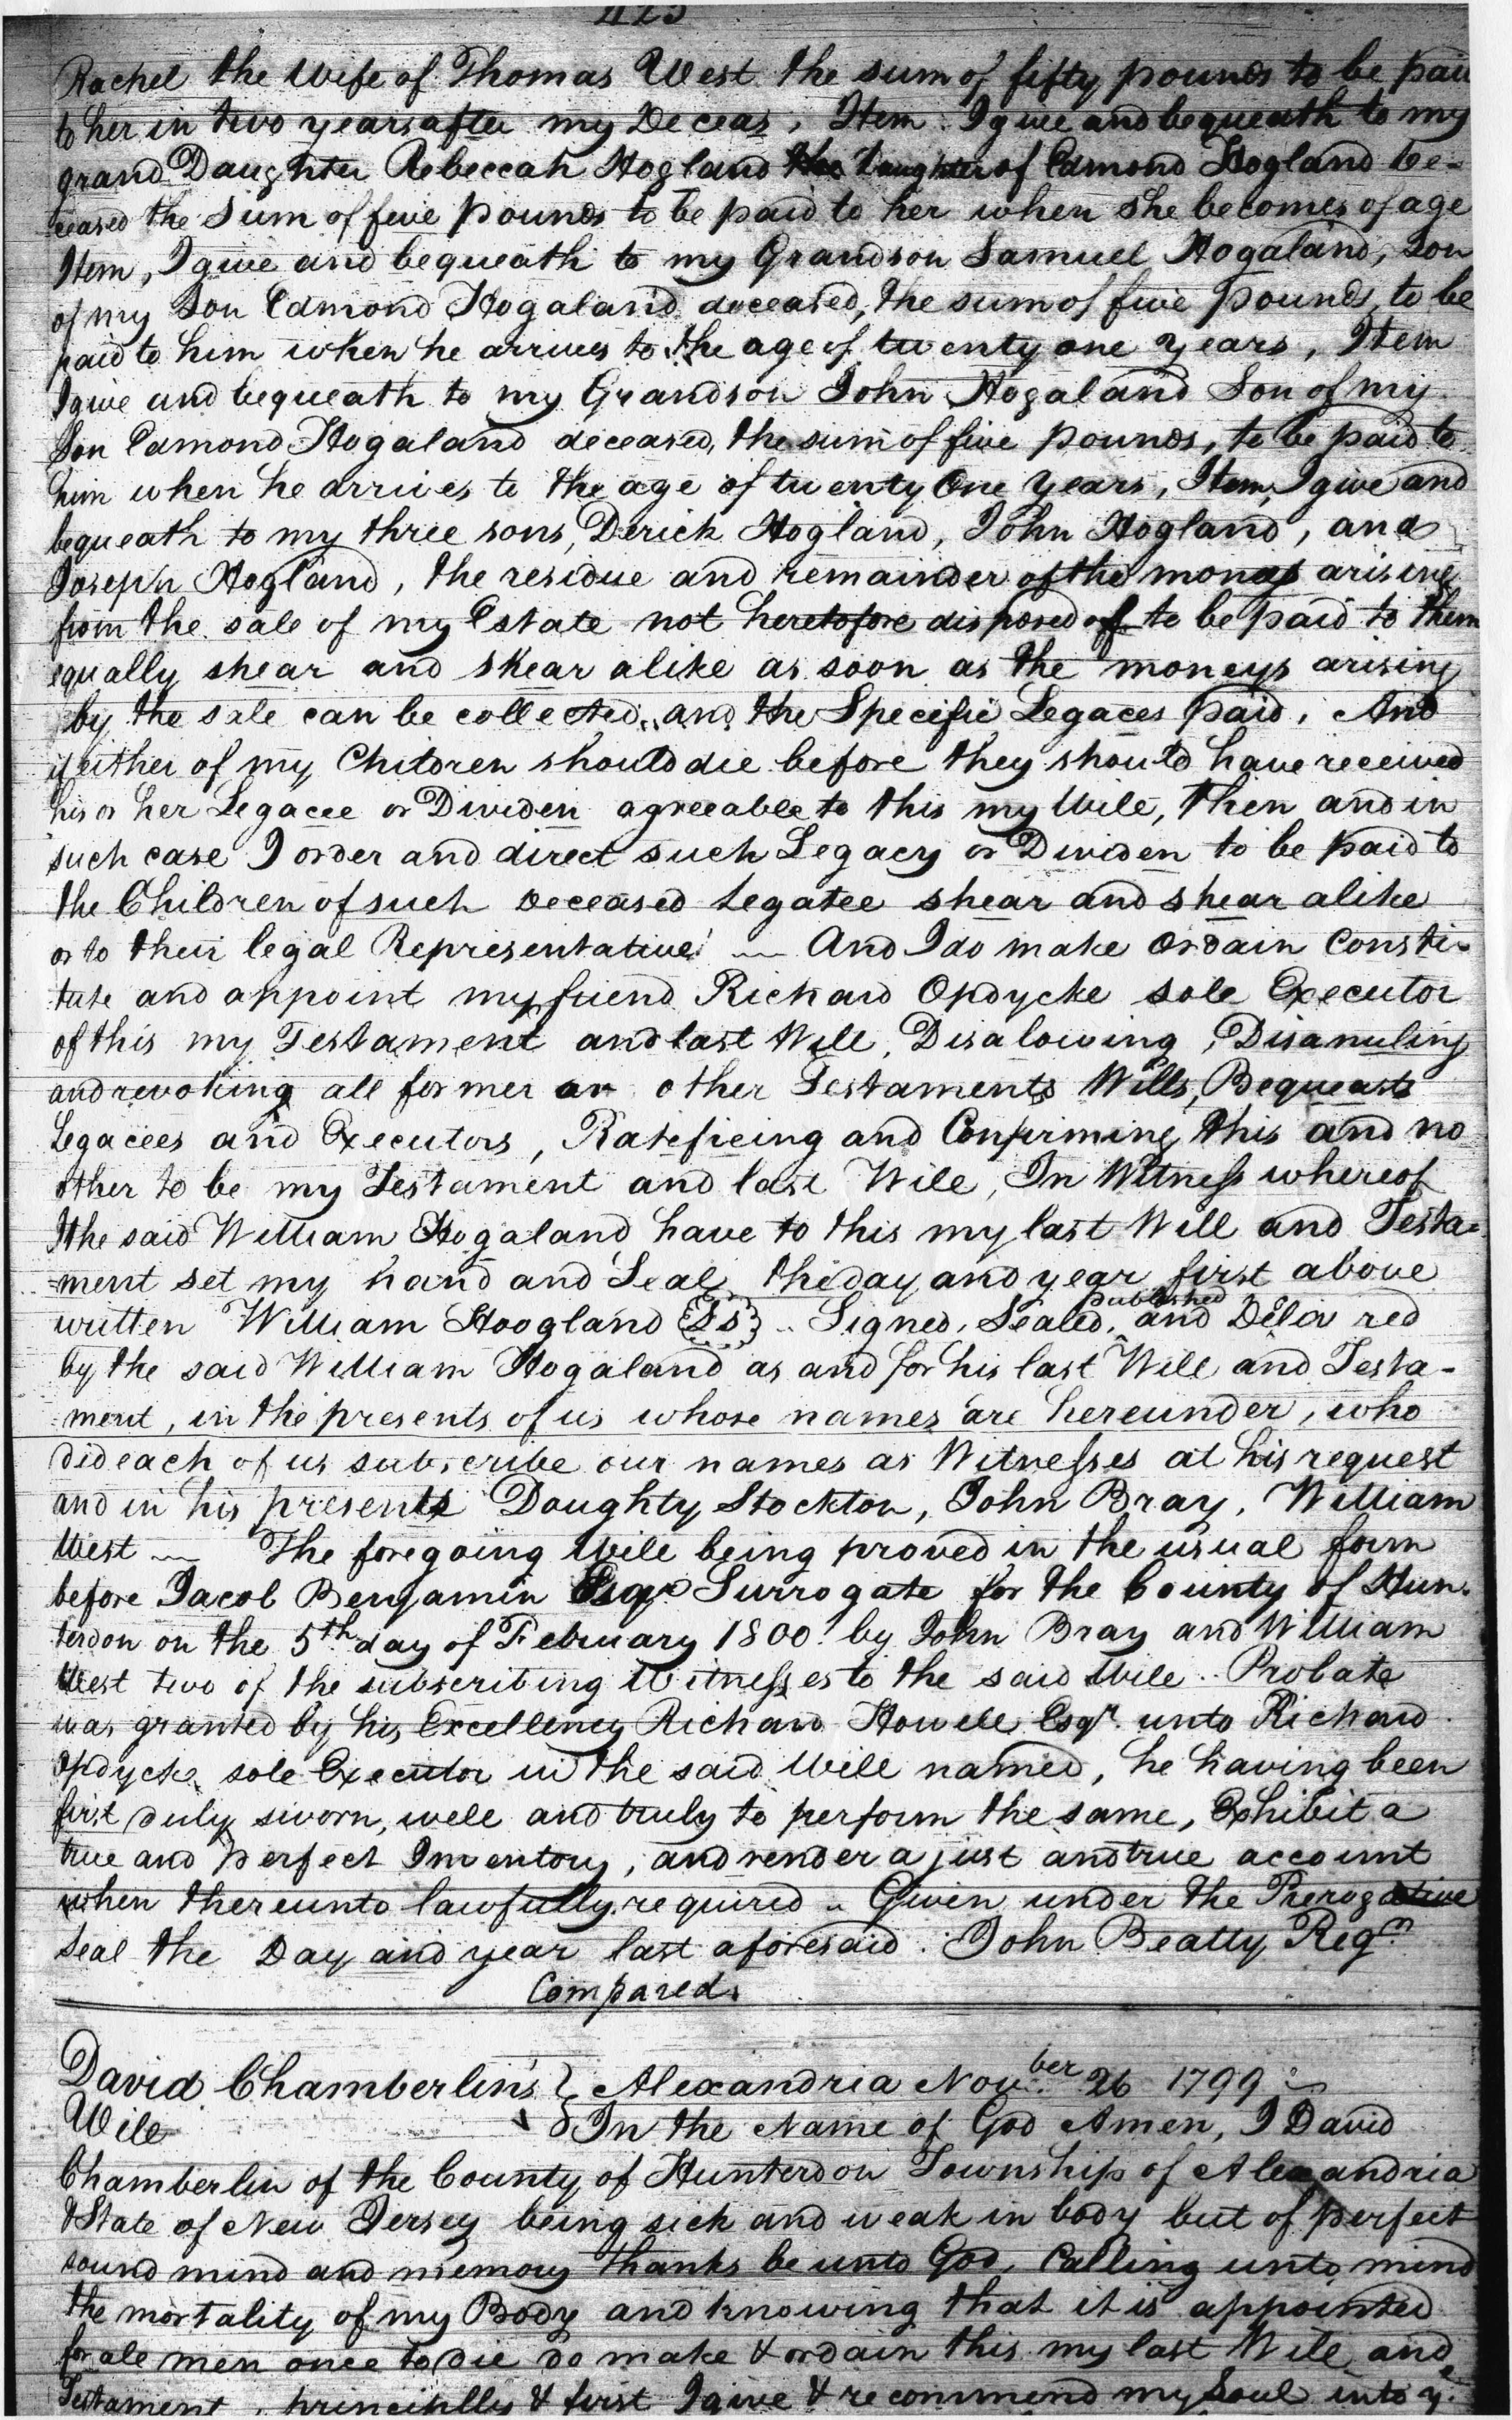 423
Rachel the Wife of Thomas West the sum of fifty pounds to be paid
to her in two years after my Deceas, Item. I give and bequeath to my
grand Daughter Rebeccah Hogland the Daughter of Edmond Hogland De-
ceased the Sum of five pounds to be paid to her when She becomes of age
Item, I give and bequeath to my Grandson Samuel Hogaland, Son
of my Son Edmond Hogaland deceased, the sum of five pounds, to be
paid to him when he arrives to the age of twenty one years, Item
I give and bequeath to my Grandson John Hogaland Son of my
Son Edmond Hogaland deceased, the sum of five pounds, to be paid to
him when he arrives to the age of twenty One years, Item, I give and
bequeath to my three sons, Derick Hogland, John Hogland, and
Joseph Hogland, the residue and remainder of the moneys arising
from the sale of my Estate not heretofore disposed of to be paid to them
equally shear and shear alike as soon as the moneys arising
by the sale can be collected, and the Specific Legaces paid, And
if either of my Children should die before they should have received
his or her Legacee or Dividen agreeable to this my Will, then and in
such case I order and direct such Legacy or Dividen to be paid to
the Children of such deceased Legatee shear and shear alike
or to their legal Representative. — And I do make Ordain Consti-
tute and appoint my friend Richard Opdycke sole Executor
of this my Testament and last Will, Disalowing, Disanuling
and revoking all former or other Testaments Wills, Bequeasts
Legacees and Executors, Rateficing and Confirming this and no
other to be my Testament and last Will, In Witness whereof
I the said William Hogaland have to this my last Will and Testa-
=ment set my hand and Seal the day and year first above
written William Hoogland {Ls} .. Signed, Sealed, published and Deliv red
by the said William Hogaland as and for his last Will and Testa-
ment, in the presents of us whose names are hereunder, who
did each of us subscribe our names as Witnesses at his request
and in his presents Doughty Stockton, John Bray, William
West — The foregoing Will being proved in the usual form
before Jacob Benjamin Esqr Surrogate for the County of Hun-
terdon on the 5th day of February 1800. by John Bray and William
West two of the subscribing Witnesses to the said Will .. Probate
was granted by his Excellency Richard Howell Esqr. unto Richard
Opdycke sole Executor in the said Will named, he having been
first duly sworn, well and truly to perform the same, Exhibit a
true and perfect Inventory, and render a just and true account
when thereunto lawfully required .. Given under the Prerogative
Seal the Day and year last aforesaid. John Beatty, Regr.
Compared.
David Chamberlin's } Alexandria Novber 26 1799
Will } In the Name of God Amen, I David
Chamberlin of the County of Hunterdon Township of Alexandria
& State of New Jersey being sick and weak in body but of perfect
sound mind and memory thanks be unto God, Calling unto mind
the mortality of my Body and knowing that it is appointed
for all men once to die do make & ordain this my last Will and
Testament, principlly & first I give & recommend my Soul into ye.